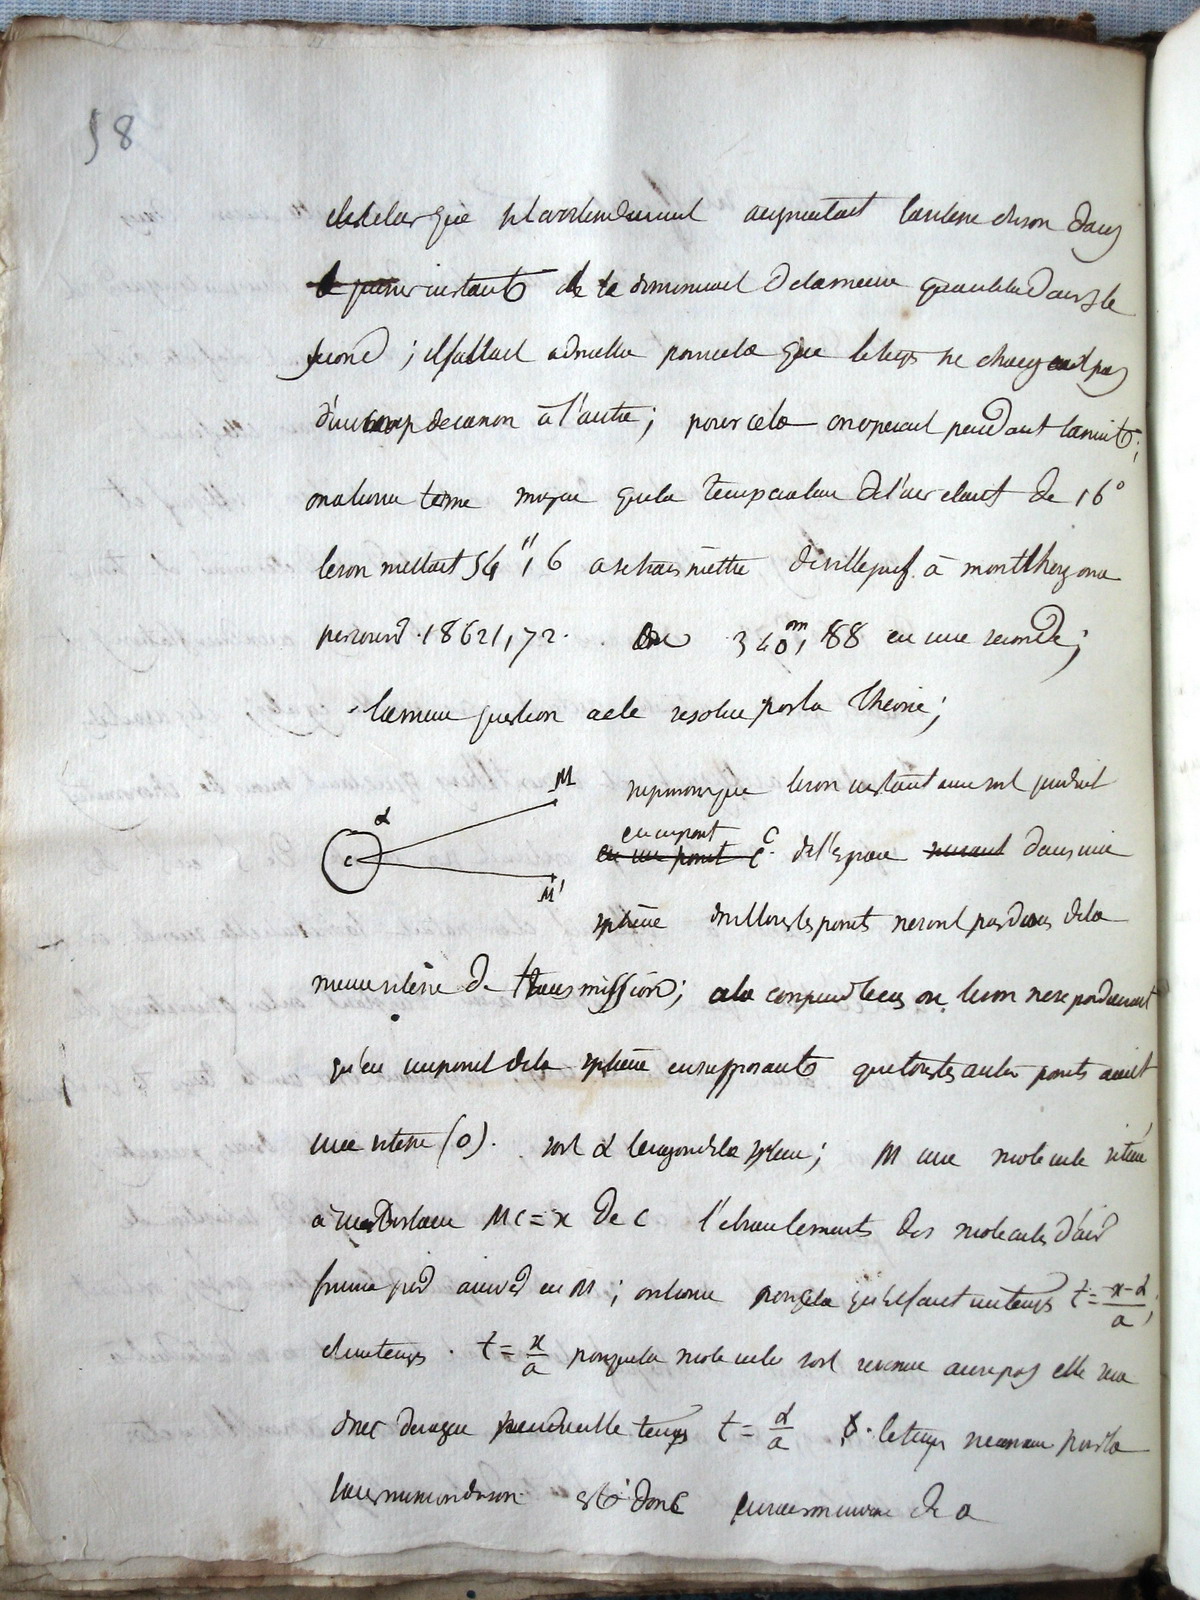 58
que augmentait la vitesse du son dans
le premier instant de la même quantité dans le
second ; il fallait admettre pour cela que le temps ne changeait pas
d'un coup de canon à l'autre ; pour cela on operait pendant la nuit ;
on a trouvé terme moyen que la température de l'air etant de 16°
le son mettait 54",6 à se transmettre de villejuif à montlhery on a
parcouru 18621,72. donc 340m,88 en une seconde ;
la meme question a ete resolue par la théorie ;
M
α
C
M'
supposons que le son instantanné soit produit
en un point
en un point C de l'espace dans une
sphère dont tous les points seront pas doués de la
meme vitesse de transmission ; cela comprend le cas ou le son ne se produirait
qu'en un point de la sphère en supposant que tous les autres points aient
une vitesse (0). soit α le rayon de la sphere ; M une molecule située
à une distance MC = x de C l'ebranlement des molecules d'air
arrivé en M ; on trouve pour cela qu'il faut un temps t = (x-α)/a ;
et un temps t = x/a pour que la molecule soit revenue au repos elle sera
donc derangée pendant le temps t = α/a . le temps necessaire pour la
transmission du son est donc en raison inverse de a